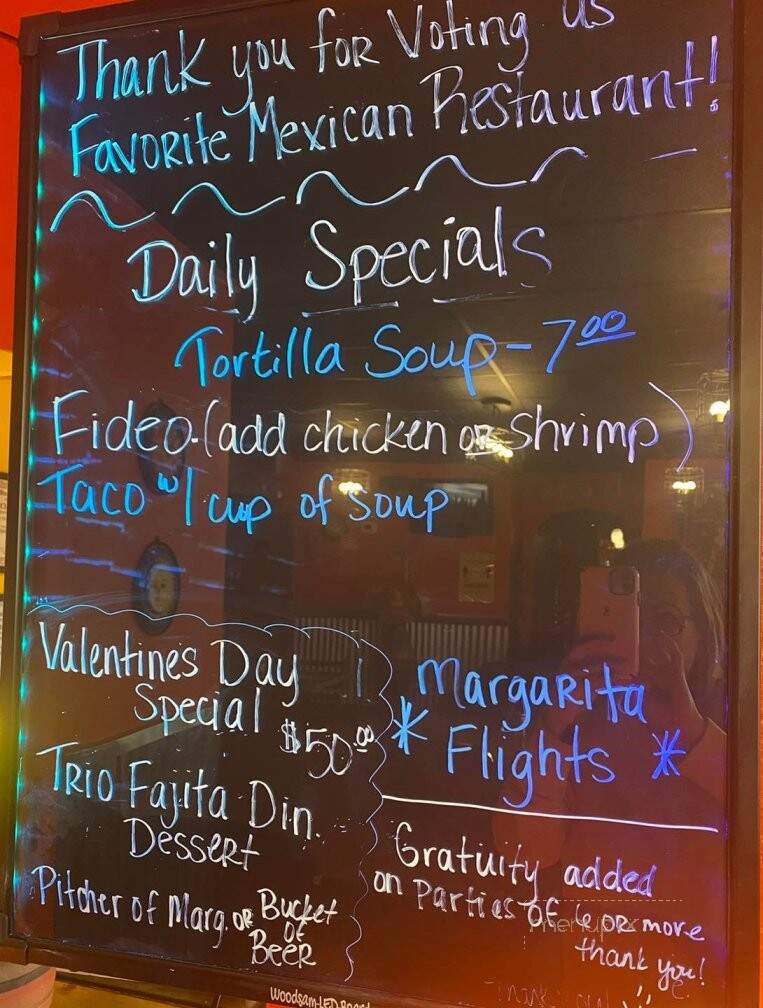 Thank you for Voting us
Favorite Mexican Restaurant!
Daily Specials
Tortilla Soup - 7.00
Fideo. (add chicken or Shrimp)
Taco w/ cup of soup
Valentines Day
Special
$50.00
Trio Fajita Din.
Dessert
Pitcher of Marg. or Bucket
of
Beer
Margarita
* Flights *
Gratuity added
on Parties of 6 or more
thank you!
Woodsam-LED Board